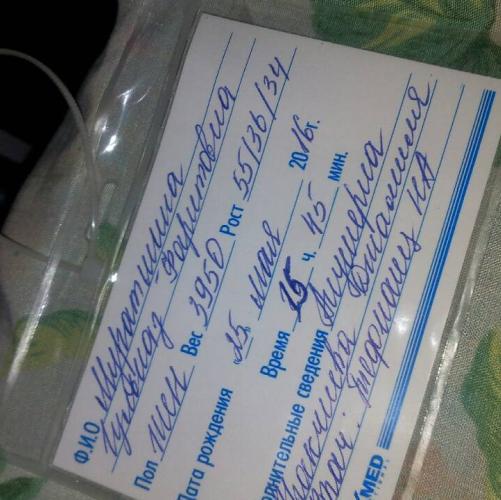 Ф.И.О Муратшина
Гульназ Фаритовна
Пол жен Вес 3950 Рост 55/36/34
Дата рождения 25 мая 2016г.
Время 15 ч. 45 мин.
олнительные сведения Акушерка
Виталия
рач: НА
MED